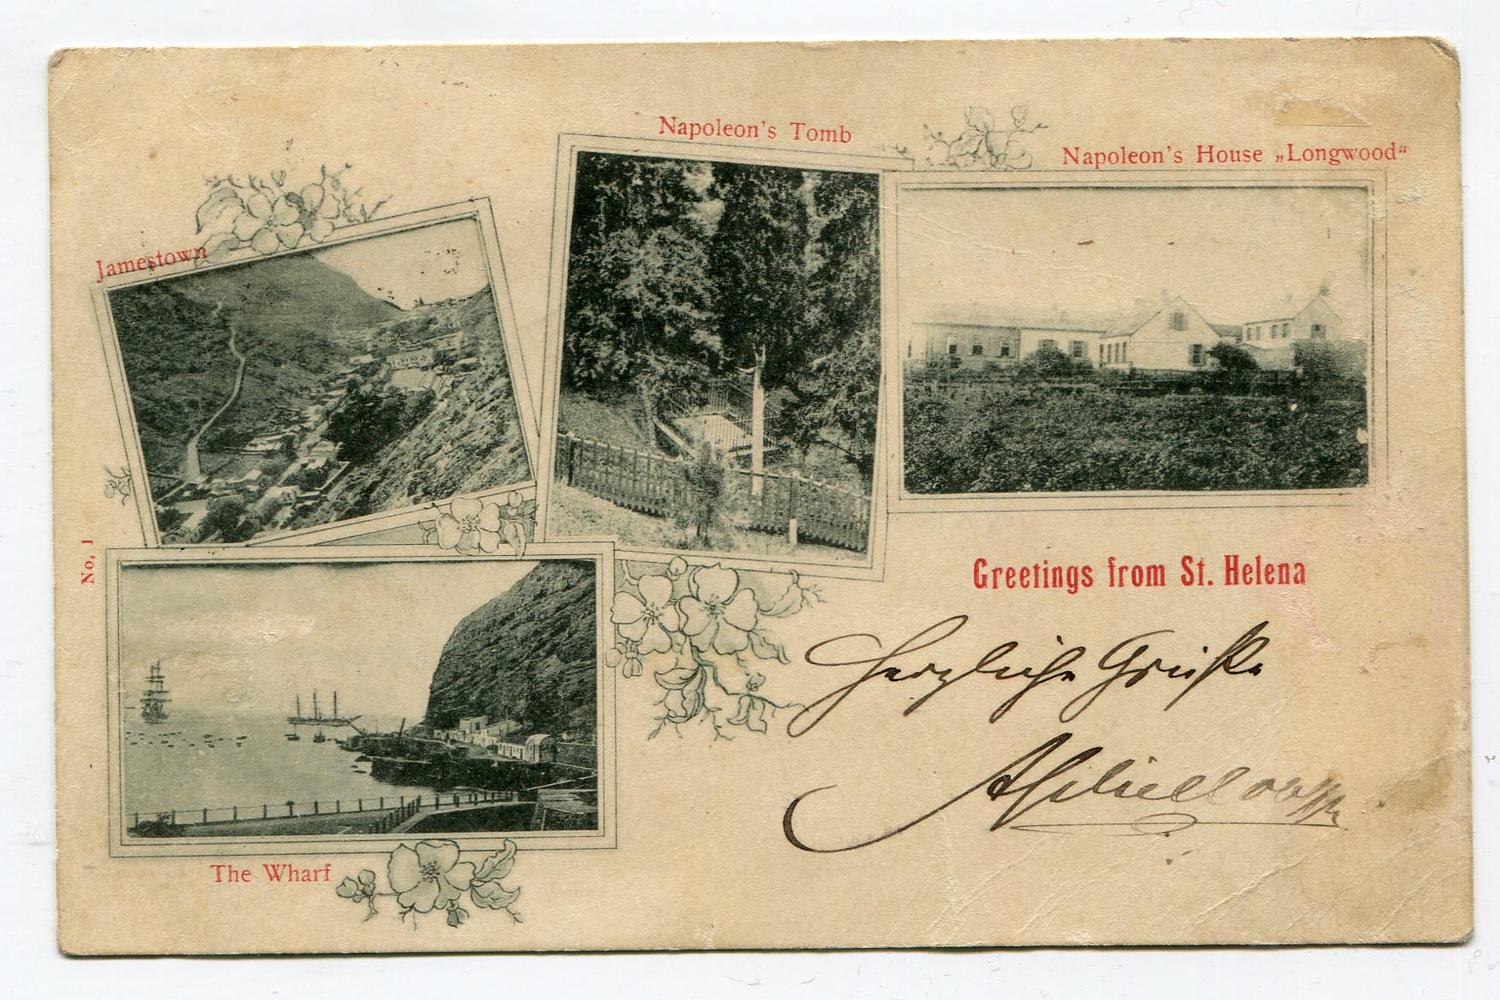 Napoleon's Tomb
Napoleon's House „Longwood“
Jamestown
No. 1
Greetings from St. Helena
Herzliche Grüße
The Wharf